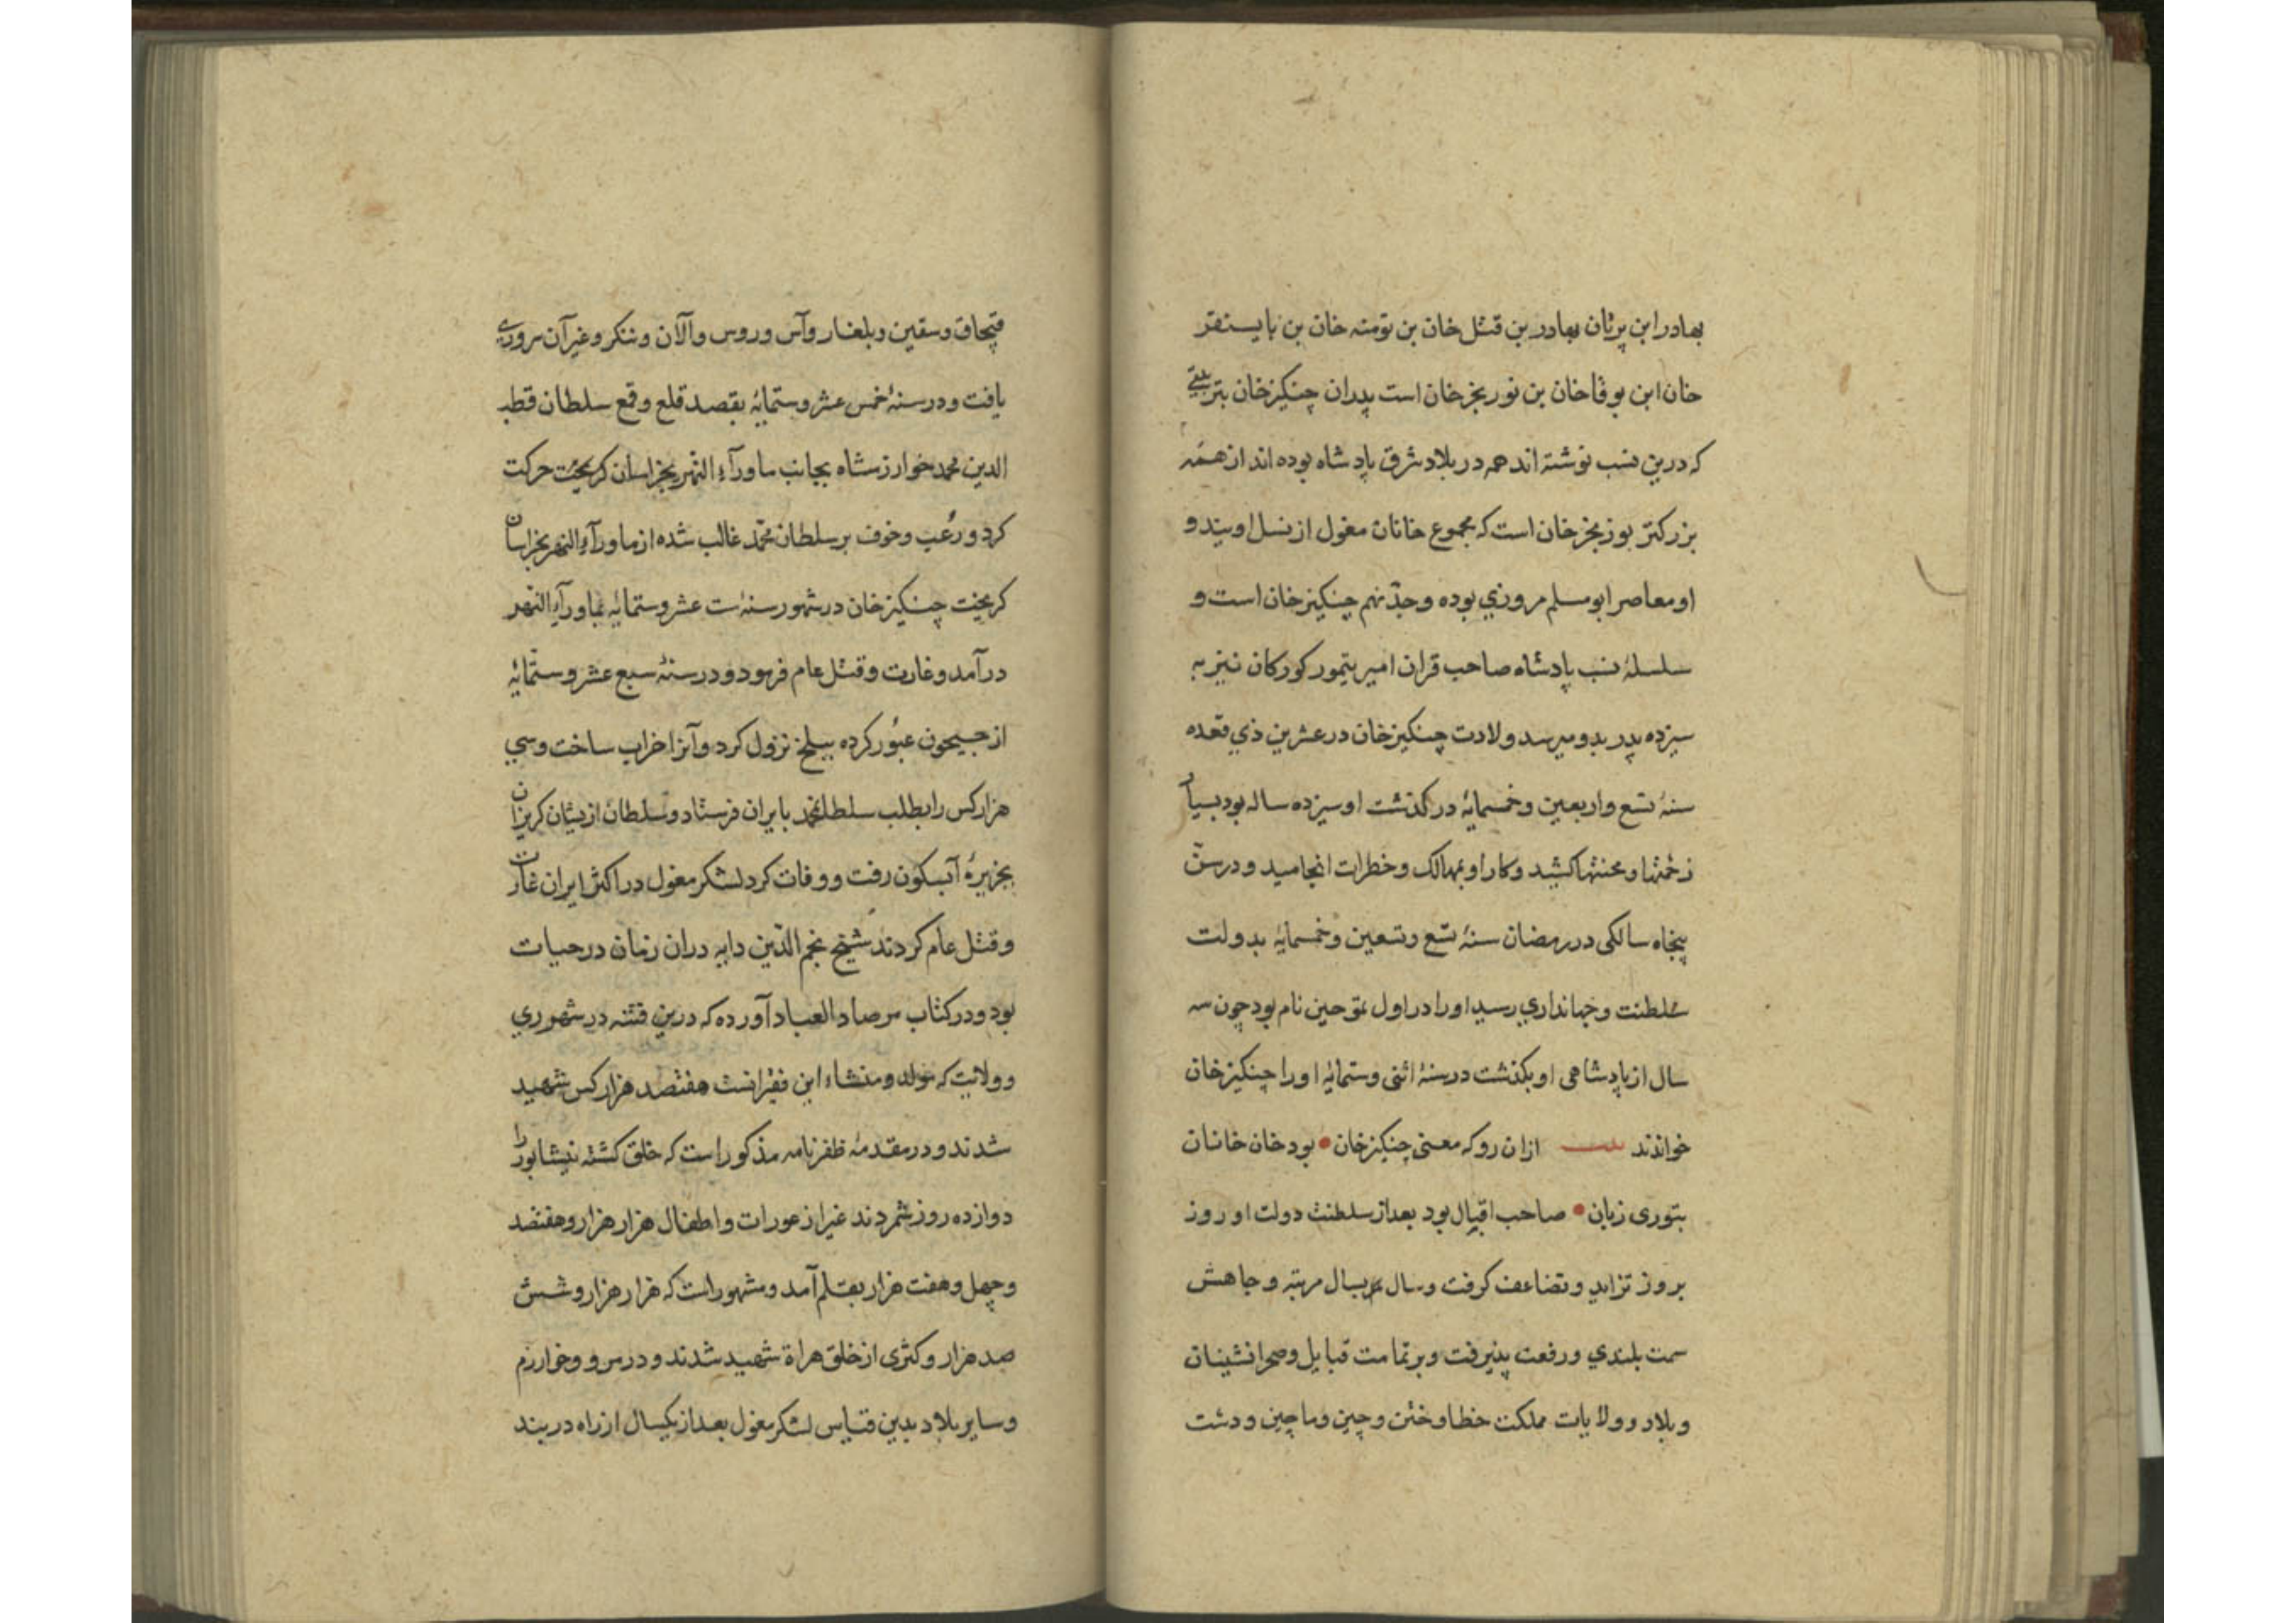 بهادر ابن برتان بهادر بن قتل خان بن تومنه خان بن بایسنقر
خان ابن بوقا خان بن نوربخر خان است پدران چنکیز خان بترتیبی
که درین نسب نوشته اند همه در بلاد شرق پادشاه بوده اند از همه
بزرکتر بوزبخر خان است که مجموع خانان مغول از نسل اویند و
او معاصر ابو مسلم مروزي بوده و جدّ نهم چنکیز خان است و
سلسلهٔ نسب پادشاه صاحب قران امیر تیمور کورکان نیز به
سیزده پدر بدو میرسد ولادت چنکیز خان در عشرین ذي قعده
سنهٔ تسع واربعین وخمسمایهٔ در کذشت او سیزده ساله بود بسیار
زحمتها و محنتها کشید وکار او بمهالک وخطرات انجامید و در سنّ
پنجاه سالکی در رمضان سنهٔ تسع وتسعین وخمسمایهٔ بدولت
سلطنت وجهانداري رسید او را در اول تموجین نام بود چون سه
سال از پادشاهی او بکذشت در سنهٔ اثنی وستمایهٔ او را چنکیز خان
خواندند بیت ازان رو که معنی چنکیز خان • بود خان خانان
بتوری زبان • صاحب اقبال بود بعد از سلطنت دولت او روز
بروز تزاید وتضاعف کرفت وسال بسال مرتبه وجاهش
سمت بلندي ورفعت پذیرفت وبر تمامت قبایل وصحرانشینان
وبلاد وولایات مملکت خطا وختن وچین وماچین ودشت
قپچاق وسقین وبلغار وآس وروس وآلان وننکر وغیر آن سروري
یافت ودر سنهٔ خمس عشر وستمایهٔ بقصد قلع وقمع سلطان قطب
الدین محمد خوارزمشاه بجانب ماورآء النهر بخراسان کریخت حرکت
کرد ورُعب وخوف بر سلطان محمّد غالب شده از ماورآء النهر بخراسان
کریخت چنکیز خان در شهور سنهٔ ست عشر وستمایهٔ بماورآء النهر
در آمد وغارت وقتل عام فرمود ودر سنهٔ سبع عشر وستمّایهٔ
از جیحون عبور کرده ببلخ نزول کرد وآنرا خراب ساخت وسي
هزار کس را بطلب سلطان محمد بایران فرستاد وسلطان ازیشان کریزان
بجزیرهٔ آبسکون رفت ووفات کرد لشکر مغول در اکثر ایران غارت
وقتل عام کردند شیخ نجم الدّین دایه دران زمان در حیات
بود ودر کتاب مرصاد العباد آورده که درین فتنه در شهر ري
وولایت که مولد ومنشاء این فقیر انست هفتصد هزار کس شهید
شدند ودر مقدمهٔ ظفرنامه مذکور است که خلق کشته نیشابور را
دوازده روز شمردند غیر از عورات واطفال هزار هزار وهفتصد
وچهل وهفت هزار بقلم آمد ومشهور است که هزار هزار وشش
صد هزار وکثری از خلق هراة شهید شدند ودر مرو وخوارزم
وسایر بلاد بدین قیاس لشکر مغول بعد از یکسال از راه دربند